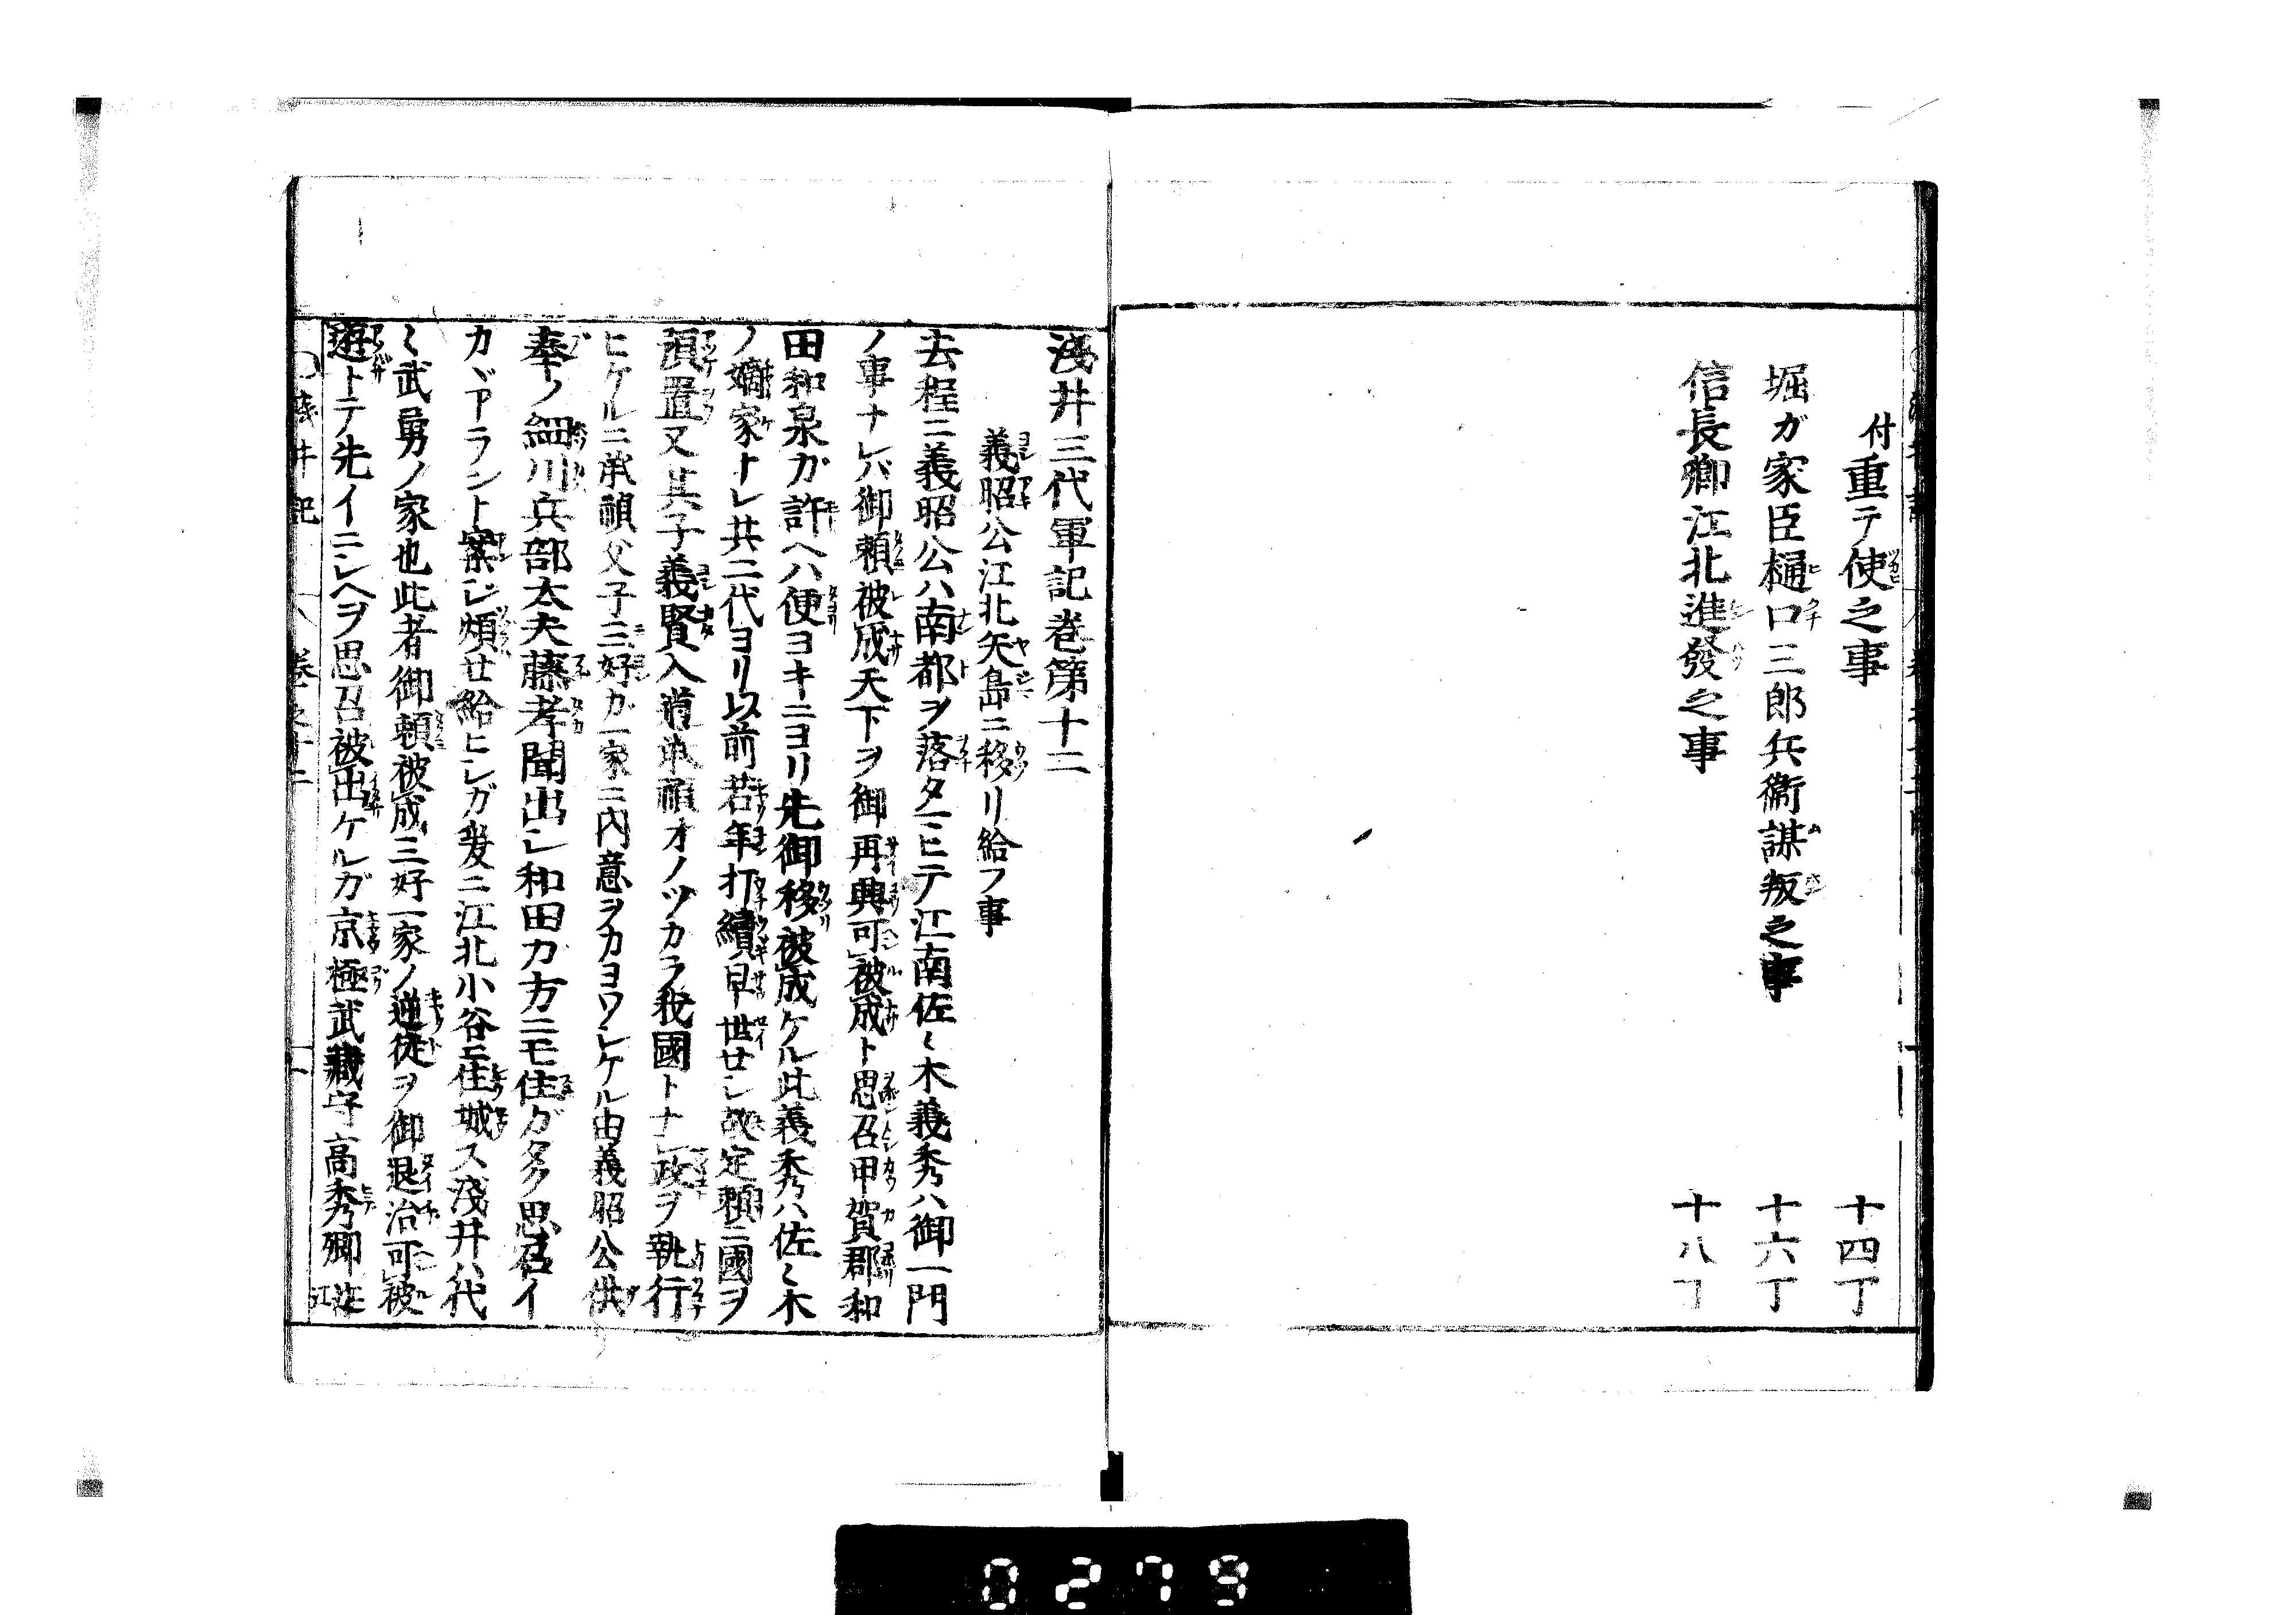 付重テ使之事 十四丁
堀ガ家臣樋口三郎兵衞謀叛之事 十六丁
信長卿江北進發之事 十八丁
淺井三代軍記巻第十二
義昭公江北矢島ニ移リ給フ事
去程ニ義昭公ハ南都ヲ落タマヒテ江南佐〻木義秀ハ御一門
ノ事ナレバ御頼被成天下ヲ御再興可被成ト思召甲賀郡和
田和泉ガ許ヘハ便ヨキニヨリ先御移被成ケル此義秀ハ佐〻木
ノ嫡家トレ共二代ヨリ以前若年打續早世せシ故定頼ニ國ヲ
預置又其子義賢入道承禎オノヅカラ我國トナシ政ヲ執行
ヒケルニ承禎父子三好ガ一家ニ内意ヲカヨワシケル由義昭公供
奉ノ細川兵部太夫藤孝聞出シ和田力方ニモ住ガタク思召イ
カヾアラント案シ煩せ給ヒシガ爰ニ江北小谷ニ住城ス淺井ハ代
〻武勇ノ家也此者御頼被成三好一家ノ逆徒ヲ御退治可被
遊トテ先イニシヘヲ思召被出ケルガ京極武藏守高秀卿
淺井記 巻之十二
0279